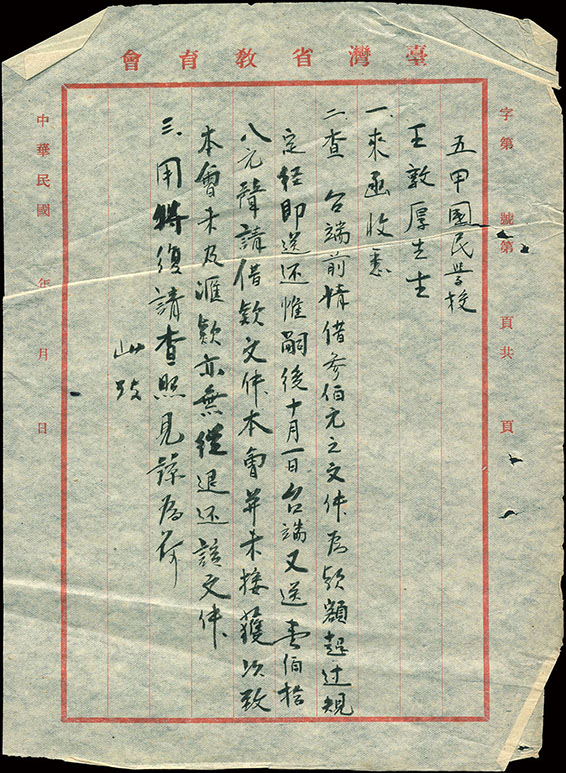 臺灣省教育會
字第 號第 頁共 頁
五甲國民學校
王敦厚先生
一、來函收悉
二、查 台端前情借參佰元之文件為欵額超过規
定經即送还惟嗣後十月一日台端又送壹佰捌
八元聲請借欵文件本會并未接獲以致
本會未及滙欵亦無從退还該文件
三、用特復請查照見諒為荷
此致
中華民國 年 月 日